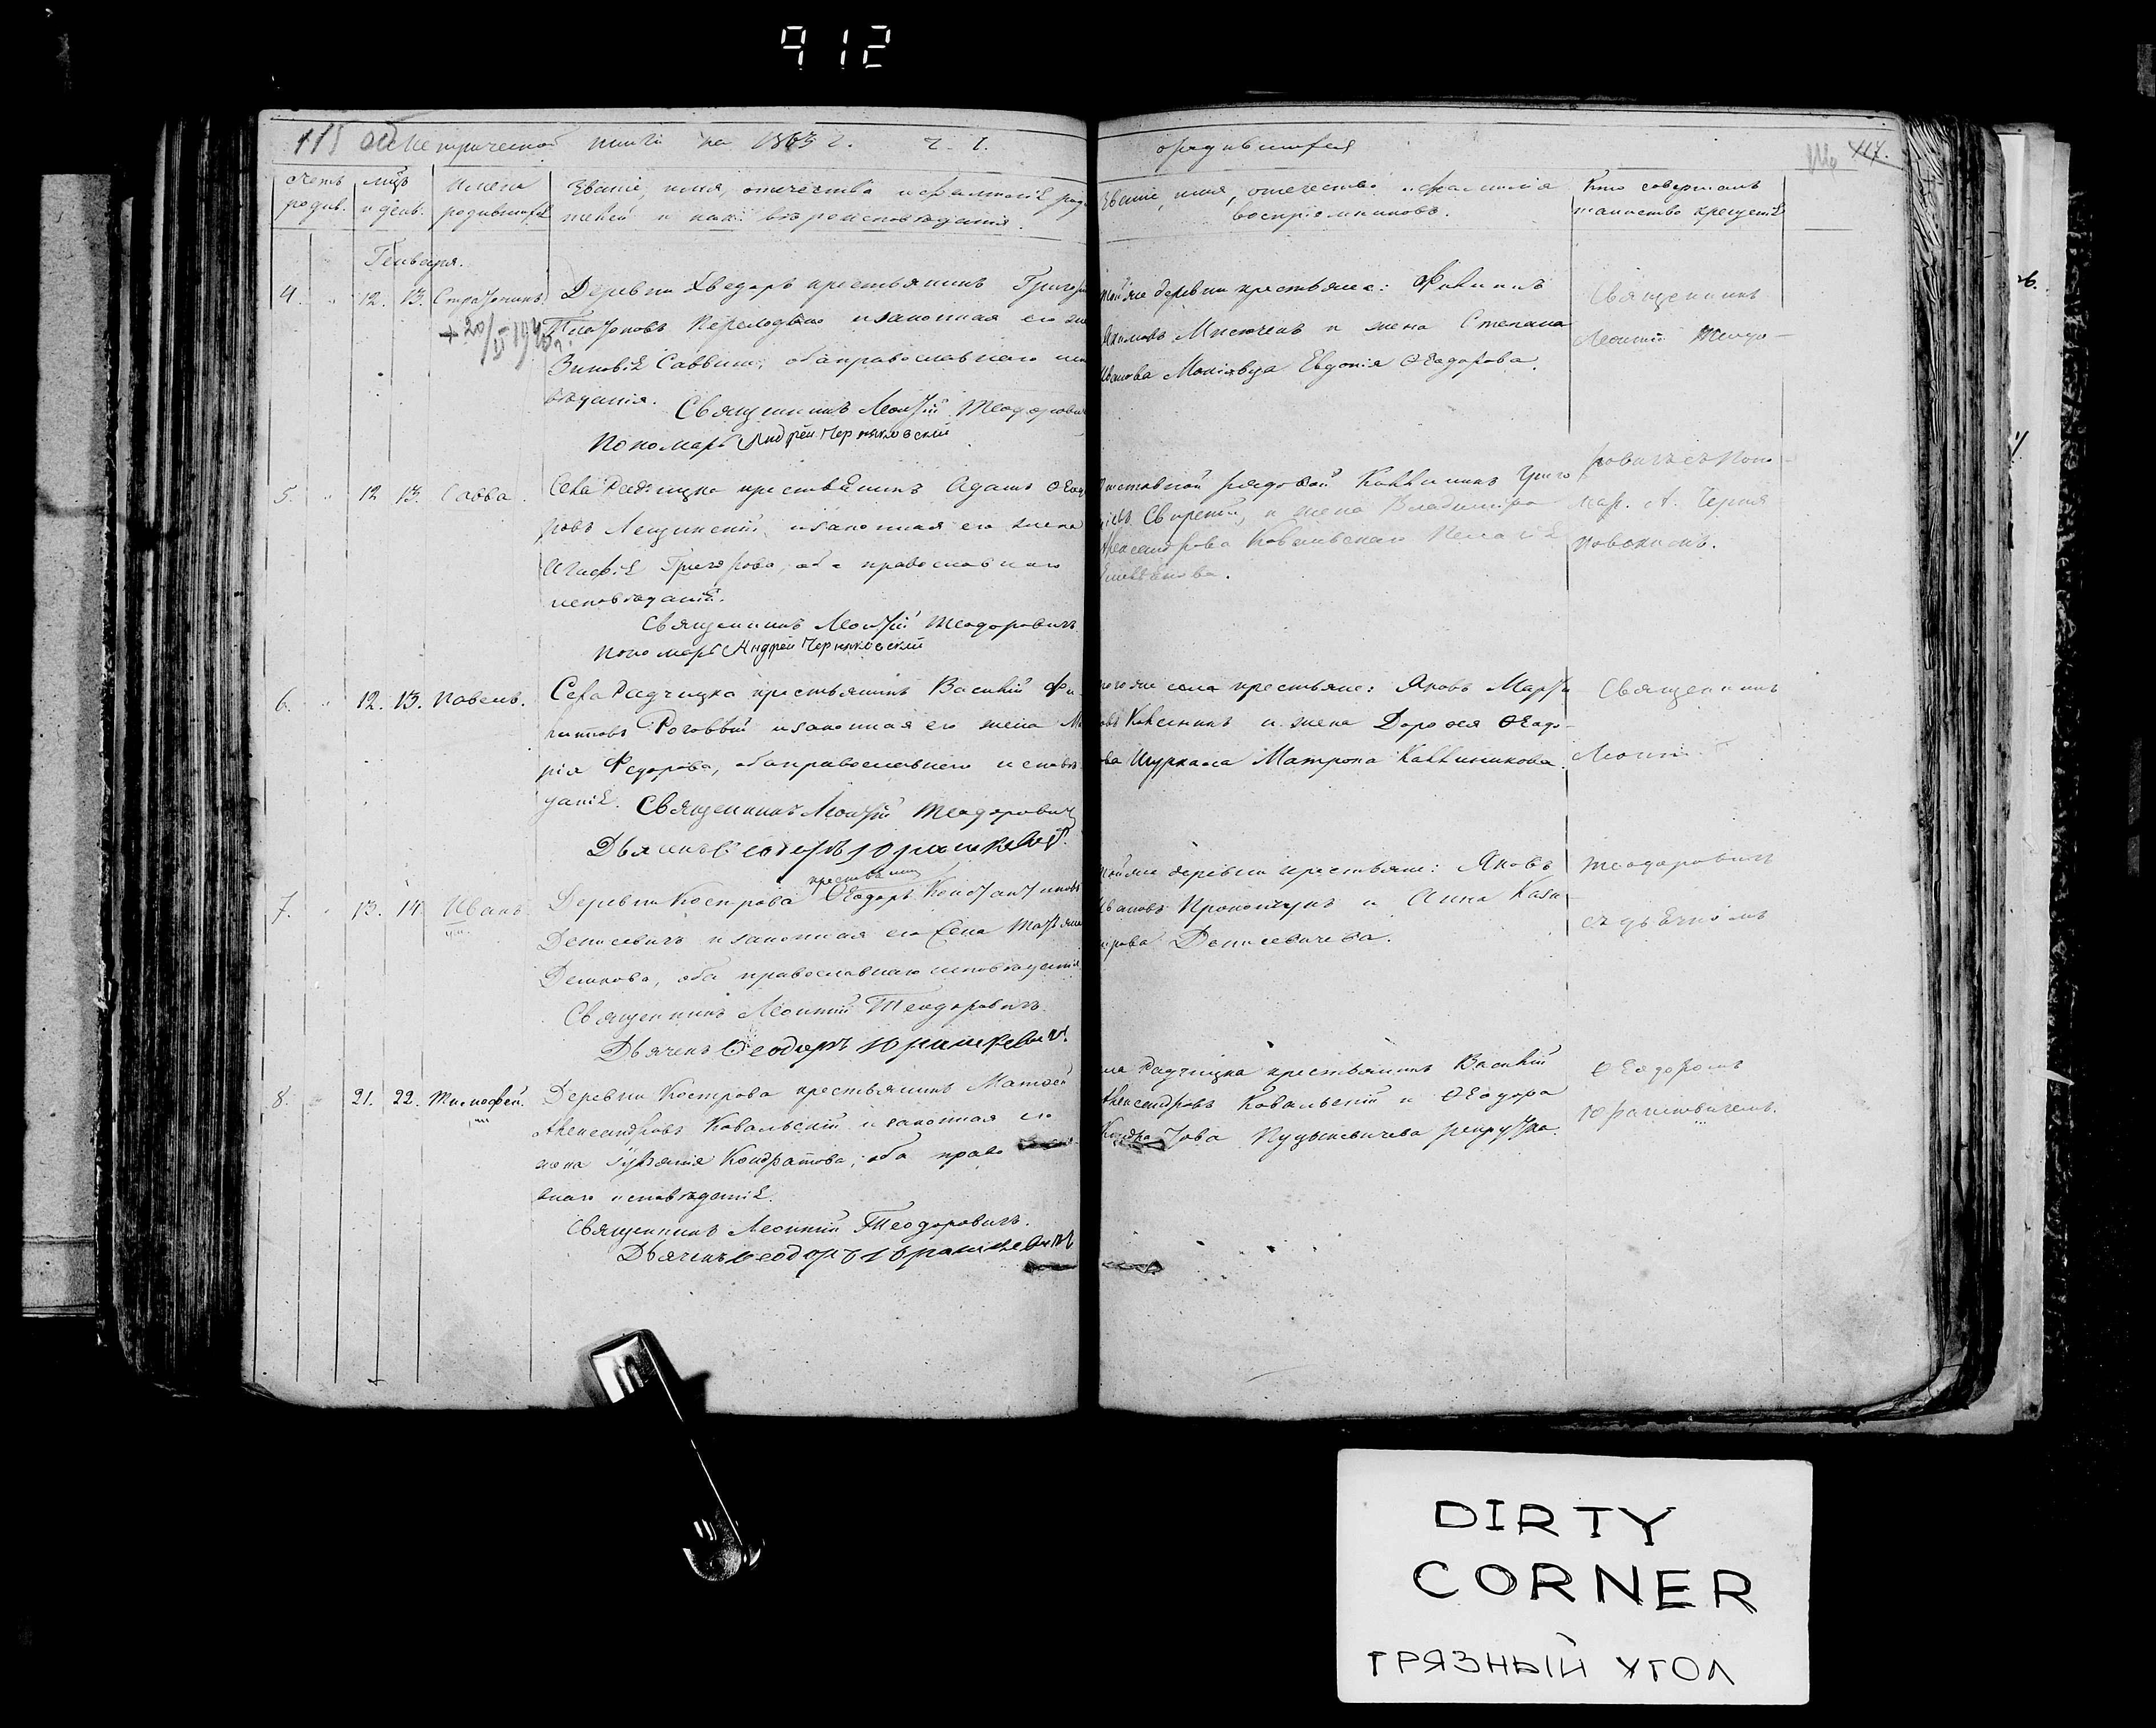 912
115 Метрической книги на 1863 г. Ч. I.
о родившихся
116 117.
Счетъ родив.
мцъ и день.
Имена родившихся
Званіе, имя, отечество и фамилія роди-
телей и какого вѣроисповѣданія.
Званіе, имя, отечество и фамилія
воспріемниковъ.
Кто совершалъ
таинство крещенія
Генваря.
4. 12. 13. Стратоникъ.
+ 20/II 194
Деревни крестьянинъ Григорій
Платоновъ и законная его
Зиновія Саввина, оба православнаго
вѣданія.
Священникъ Леонтій Теодоровичъ
Пономарь Андрей Черняковскій
тойже деревни крестьяне:
и жена Степана
Иванова Евдокія Ѳеодорова.
Священникъ
Леонтій Теодо-
5. 12 13. Савва.
Села Радчицка крестьянинъ Адамъ Ѳеодо
ровъ Лещинскій, и законная его жена
Агафія Григорова, оба православнаго
исповѣданія.
Священникъ Леонтій Теодоровичъ.
Пономарь Андрей Черняковскій
рядовой Каллиникъ Григо
и жена Владиміра
Александрова Ковальскаго Пелагія
ровичъ съ Поно-
мар. А. Черня
ковскимъ.
6. 12. 13. Павелъ.
Села Радчицка крестьянинъ Василій Фи-
липповъ и законная его жена Ма
рія Федорова, оба православнаго исповѣ
данія. Священникъ Леонтій Теодоровичъ
Дьячекъ Ѳеодоръ Юрашкевичъ.
тогоже села крестьяне: Яковъ Марти
и жена Дороѳея Ѳеодо-
ва Шуркала Матрона Каллиникова.
Священникъ
Леонтій
7. 13. 14. Иванъ
крестьянинъ
Деревни Кострова Ѳеодоръ Константиновъ
Денисевичъ и законная его жена Татьяна
оба православнаго исповѣданія
Священникъ Леонтій Теодоровичъ.
Дьячекъ Ѳеодоръ Юрашкевичъ.
тойже деревни крестьяне: Яковъ
Ивановъ Прокопчукъ и Анна
Денисевичева.
Теодоровичъ
съ дьячкомъ
8. 21. 22. Тимофей.
Деревни Кострова крестьянинъ Матѳей
Александровъ Ковальскій и законная его
жена Кондратова, оба право
внаго исповѣданія.
Священникъ Леонтій Теодоровичъ.
Дьячекъ Ѳеодоръ Юрашкевичъ
ла Радчицка крестьянинъ Василій
Александровъ Ковальскій и Ѳеодора
Кондратова Кудыкевичева рекрутка.
Ѳеодоромъ
Юрашкевичемъ.
DIRTY
CORNER
ГРЯЗНЫЙ УГОЛ